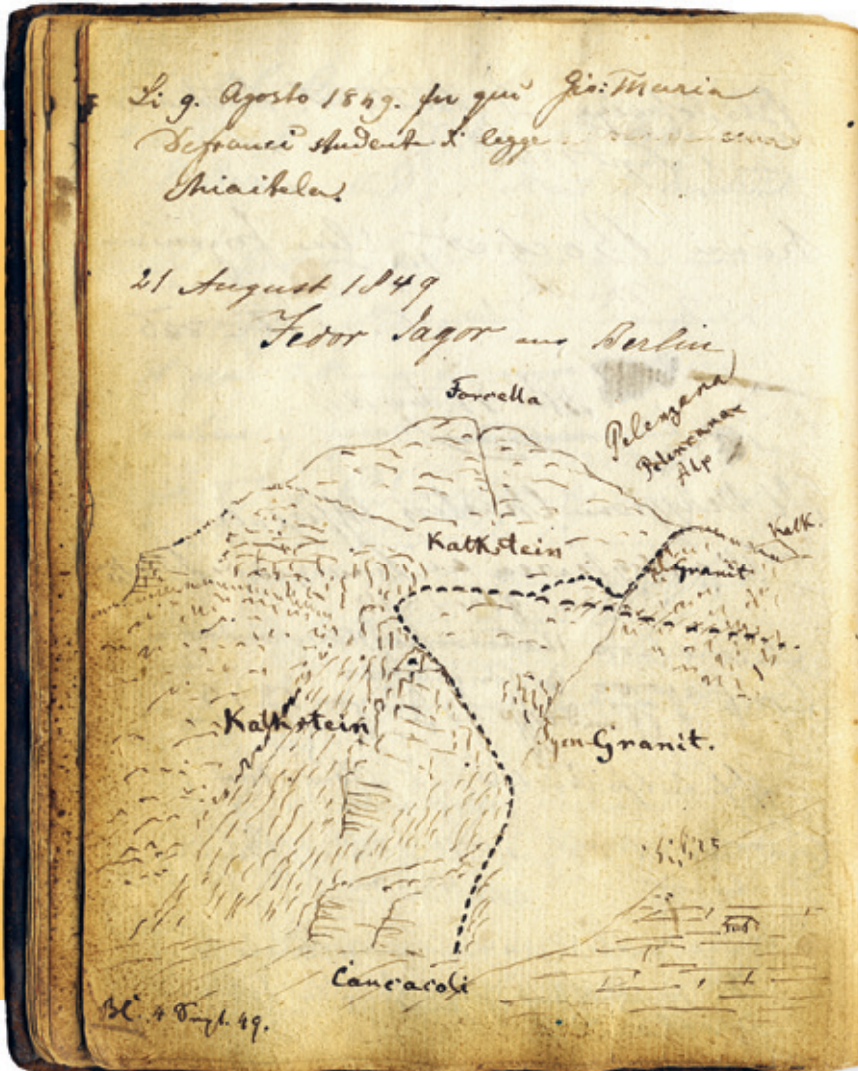 Li 9. Agosto 1849. fu qui Gio: Maria
Defranci studente di legge
21 August 1849
Fedor Jagor aus Berlin
Forcella
Pelenzana
Alp
Kalkstein
Kalk.
Granit
Kalkstein
Granit.
Cancacoli
49.